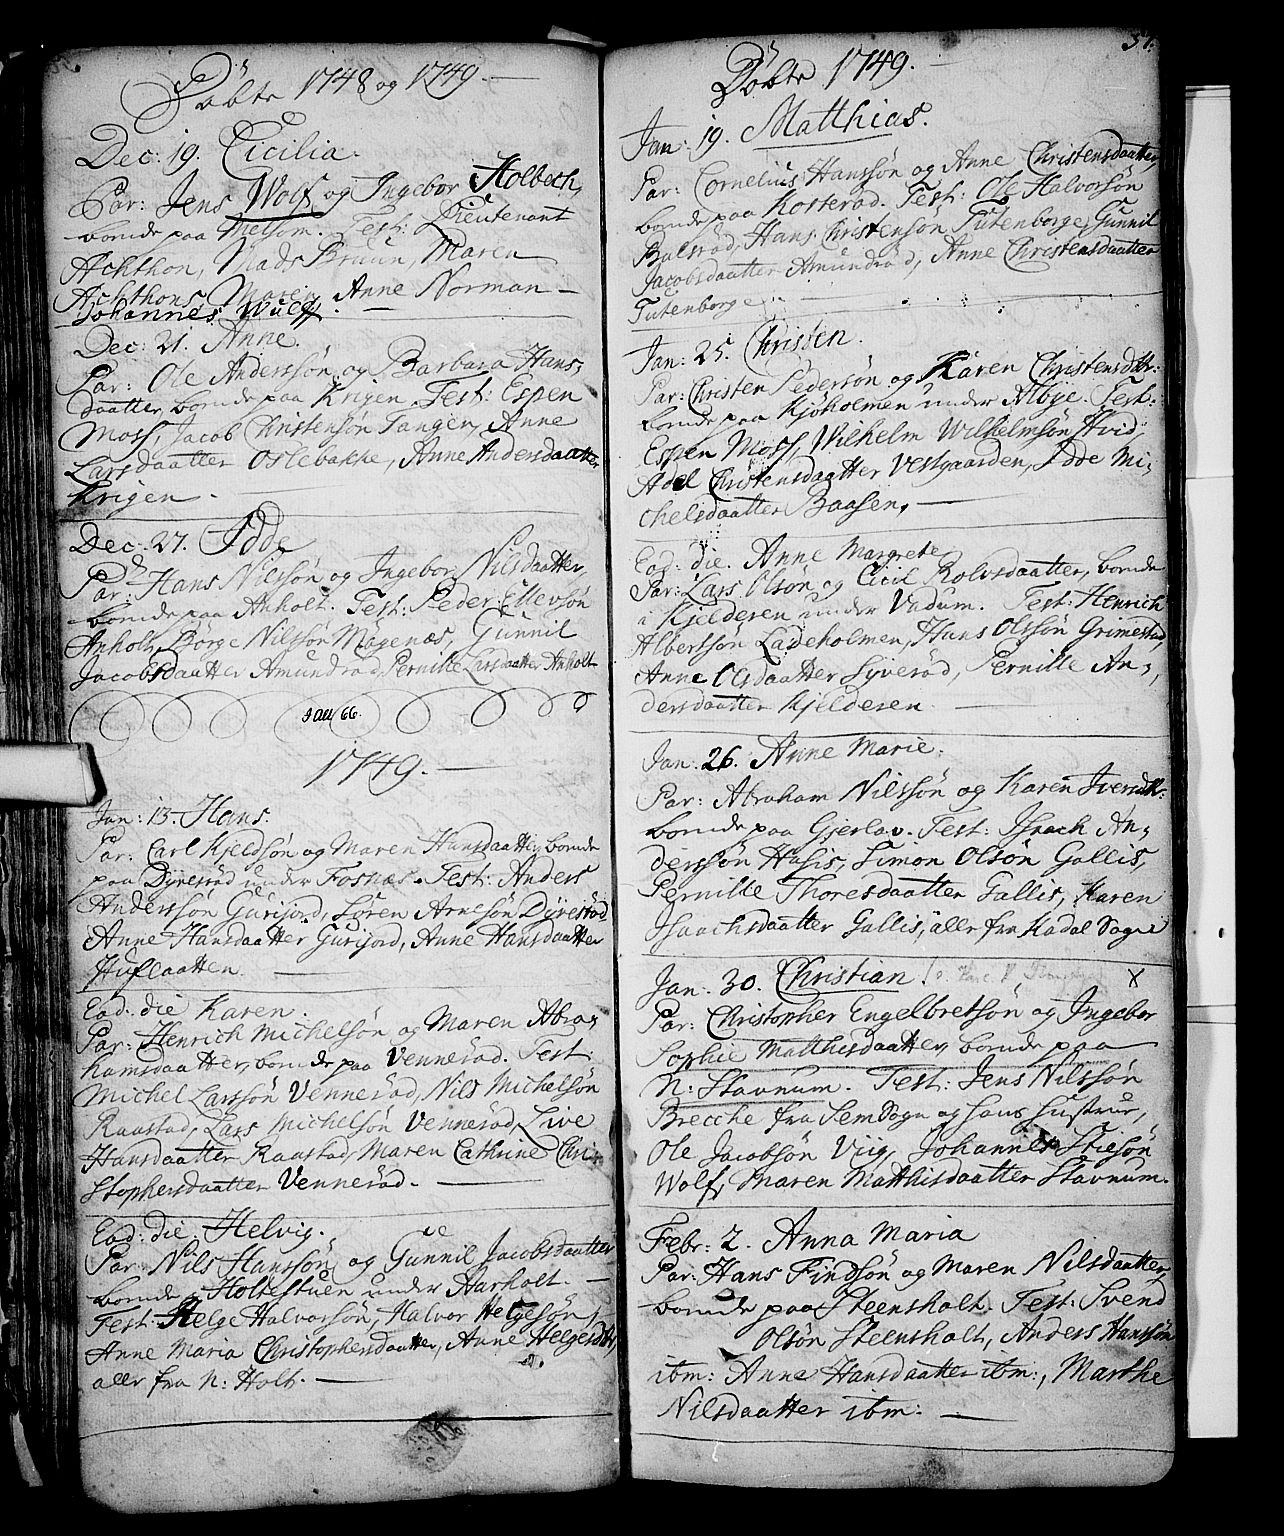 Döbte 1748 og 1749.
Dec: 19. Cicilia.
Par: Jens Wolf og Ingebor Holbech,
boende paa Melsom. Test: Lieutenant
Achthon, Mads Bruun, Maren
Achthons, Maren, Anne Norman
Johannes Wulf.
Dec: 21. Anne.
Par: Ole Anderssön og Barbara Hans-
daatter, boende paa Krigen. Test: Espen
Moss, Jacob Christensön Tangen, Anne
Larsdaatter Oslebakke, Anne Andersdaatter
Krigen.
Dec: 27. Idde
Par: Hans Nilssön og Ingebor Nilsdaatter,
boende paa Anholt. Test: Peder Ellevsön
Anholt, Borge Nilssön Mögenæs, Gunnil
Jacobsdaatter Amundrød, Pernille Larsdaatter Anholt
66.
1749.
Jan: 13. Hans.
Par: Carl Kjeldsön og Maren Hansdaatter, boende
paa Dyresröd under Fosnæs. Test: Anders
Anderssön Gurijord, Sören Arnesön Dyresröd
Anne Hansdaatter Gurijord, Anne Hansdaatter
Huflaatten.
Eod: die Karen.
Par: Henrich Michelsön og Maren Abra-
hamsdaatter, boende paa Venneröd. Test:
Michel Larssön Venneröd, Nils Michelsön
Raastad, Lars Michelsön Venneröd, Live
Hansdaatter Raastad, Maren Cathrine Chri-
stophersdaatter Venneröd.
Eod: die Helvig.
Par: Nils Hanssön og Gunnil Jacobsdaatter
boende Holtestuen under Aarholt.
Test: Helge Halvorsön, Halvor Helgesön,
Anne Maria Christophersdaatter, Anne Helgesdtr,
alle fra N: Holt.
37.
Döbte 1749.
Jan: 19. Matthias.
Par: Cornelius Hanssön og Anne Christensdaatter,
boende paa Kosteröd. Test: Ole Halvorsön
Balsröd, Hans Christensön Tutenborge, Gunnil
Jacobsdaatter Amundröd, Anne Christensdaatter
Tutenborge
Jan: 25. Christen.
Par: Christen Pedersön og Karen Christensdttr:
boende paa Kjöholmen under Alböe. Test:
Espen Moss, Wilhelm Wilhelmsön Hvid,
Adel Christensdaatter Vestgaarden, Idde Mi-
chelsdaatter Baasen.
Eod: die. Anne Margrete
Par: Lars Olsön og Cicil Rolvsdaatter, boende
i Kjelderen under Vadum. Test: Henrich
Albertsön Ladeholmen, Hans Olsön Grimestad,
Anne Olsdaatter Syveröd, Pernille An-
dersdaatter Kjelderen
Jan: 26. Anne Marie.
Par: Abraham Nilssön og Karen Iversdttr:
boende paa Gjerlav. Test: Isach An-
derssön Hasis, Simon Olsön Gallis,
Pernille Thoresdaatter Gallis, Karen
Isaachsdaatter Gallis, alle fra Rådal Sogn
Jan: 30. Christian. X
Par: Christopher Engelbretsön og Ingebor
Sophie Matthisdaatter, boende paa
N: Stavnum. Test: Jens Nilssön
Brecche fra Sem Sogn og hans hustrue,
Ole Jacobsön Viig, Johannes Stiesön
Wolf, Maren Matthisdaatter Stavnum.
Febr: 2. Anna Maria
Par: Hans Findsön og Maren Nilsdaatter,
boende paa Steensholt. Test: Svend
Olsön Steensholt, Anders Hanssön
ibm: Anne Hansdaatter ibm:, Marthe
Nilsdaatter ibm: